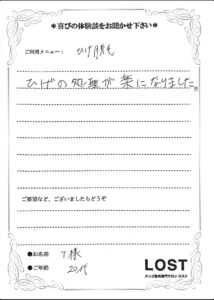 ＊喜びの体験談をお聞かせ下さい＊
ご利用メニュー： ひげ脱毛
ひげの処理が楽になりました。
ご要望など、ございましたらどうぞ
●お名前 T様
●ご年齢 20代
LOST
メンズ脱毛専門サロン ロスト